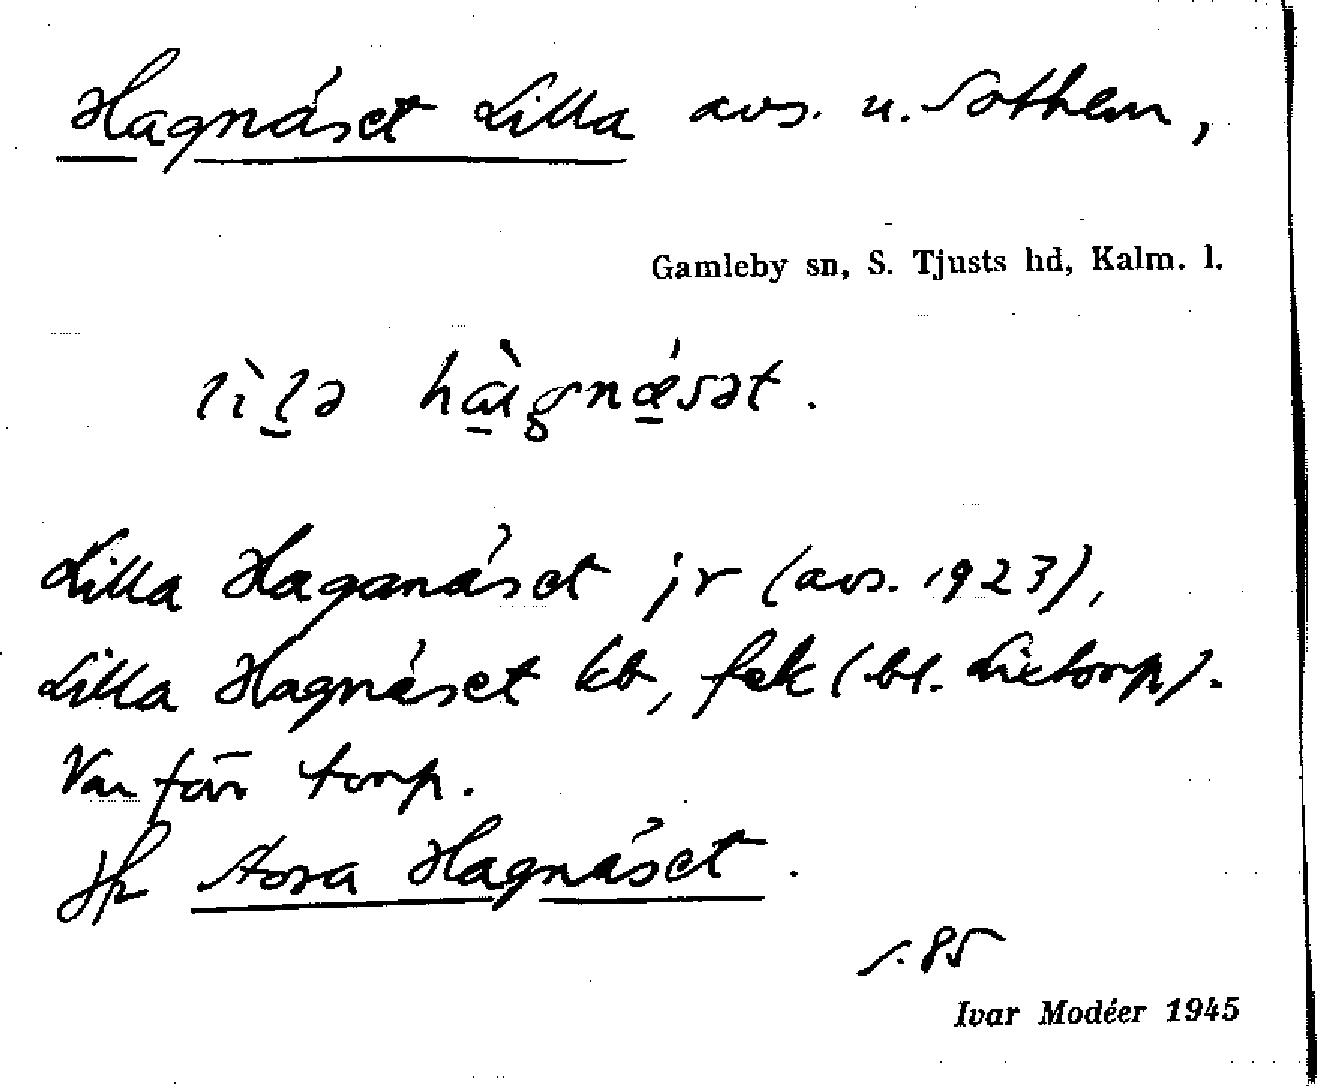 Hagnäset Lilla avs. u. Sothem,
Gamleby sn, S. Tjusts hd, Kalm. l.
Lilla Haganäset jr (avs. 1923),
Lilla Hagnäset kb, fek (bl. Lietorp).
Var förr torp.
Jfr Stora Hagnäset.
s. 85
Ivar Modéer 1945